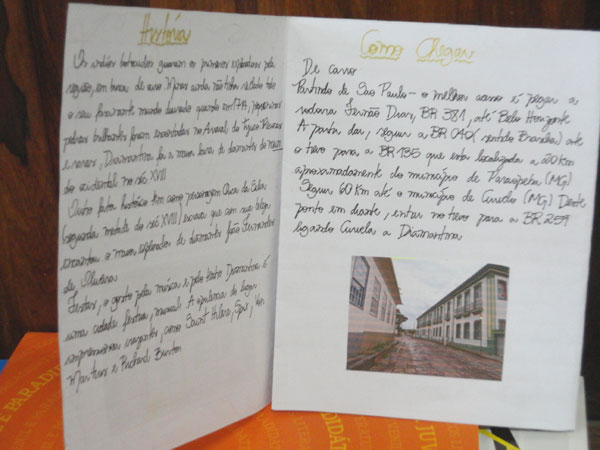 História
Os índios botocudos guiaram os primeiros exploradores pela
região, em busca de ouro. Minas ainda não tinha
o seu fascinante mundo quando em 17
pedras brilhantes foram encontradas no Arraial do Tijuco
e raras, Diamantina foi a maior lavra de diamantes do mun
do ocidental no séc XVIII
Outro fator histórico tem como personagem Chica da Silva
(segunda metade do séc XVIII) escrava que com sua beleza
encantou o maior explorador de diamantes João Fernandes
de Oliveira
Festas, o gosto pela música e pelo teatro Diamantina é
uma cidade festiva, musical. A opulência do lugar
impressionou viajantes, como Saint Hilare, Spix, Von
Martius e Richard Burton
Como Chegar
De carro
Partindo de São Paulo - o melhor acesso é pegar a
rodovia Fernão Dias, BR 381, até Belo Horizonte
A partir daí, seguir a BR 040 (sentido Brasília) até
o trevo para a BR 135 que está localizado a
aproximadamente do município de Paraopeba (MG)
Seguir 60 Km até o município de Curvelo (MG) Deste
ponto em diante, entrar no trevo para a BR 259
ligando Curvelo a Diamantina